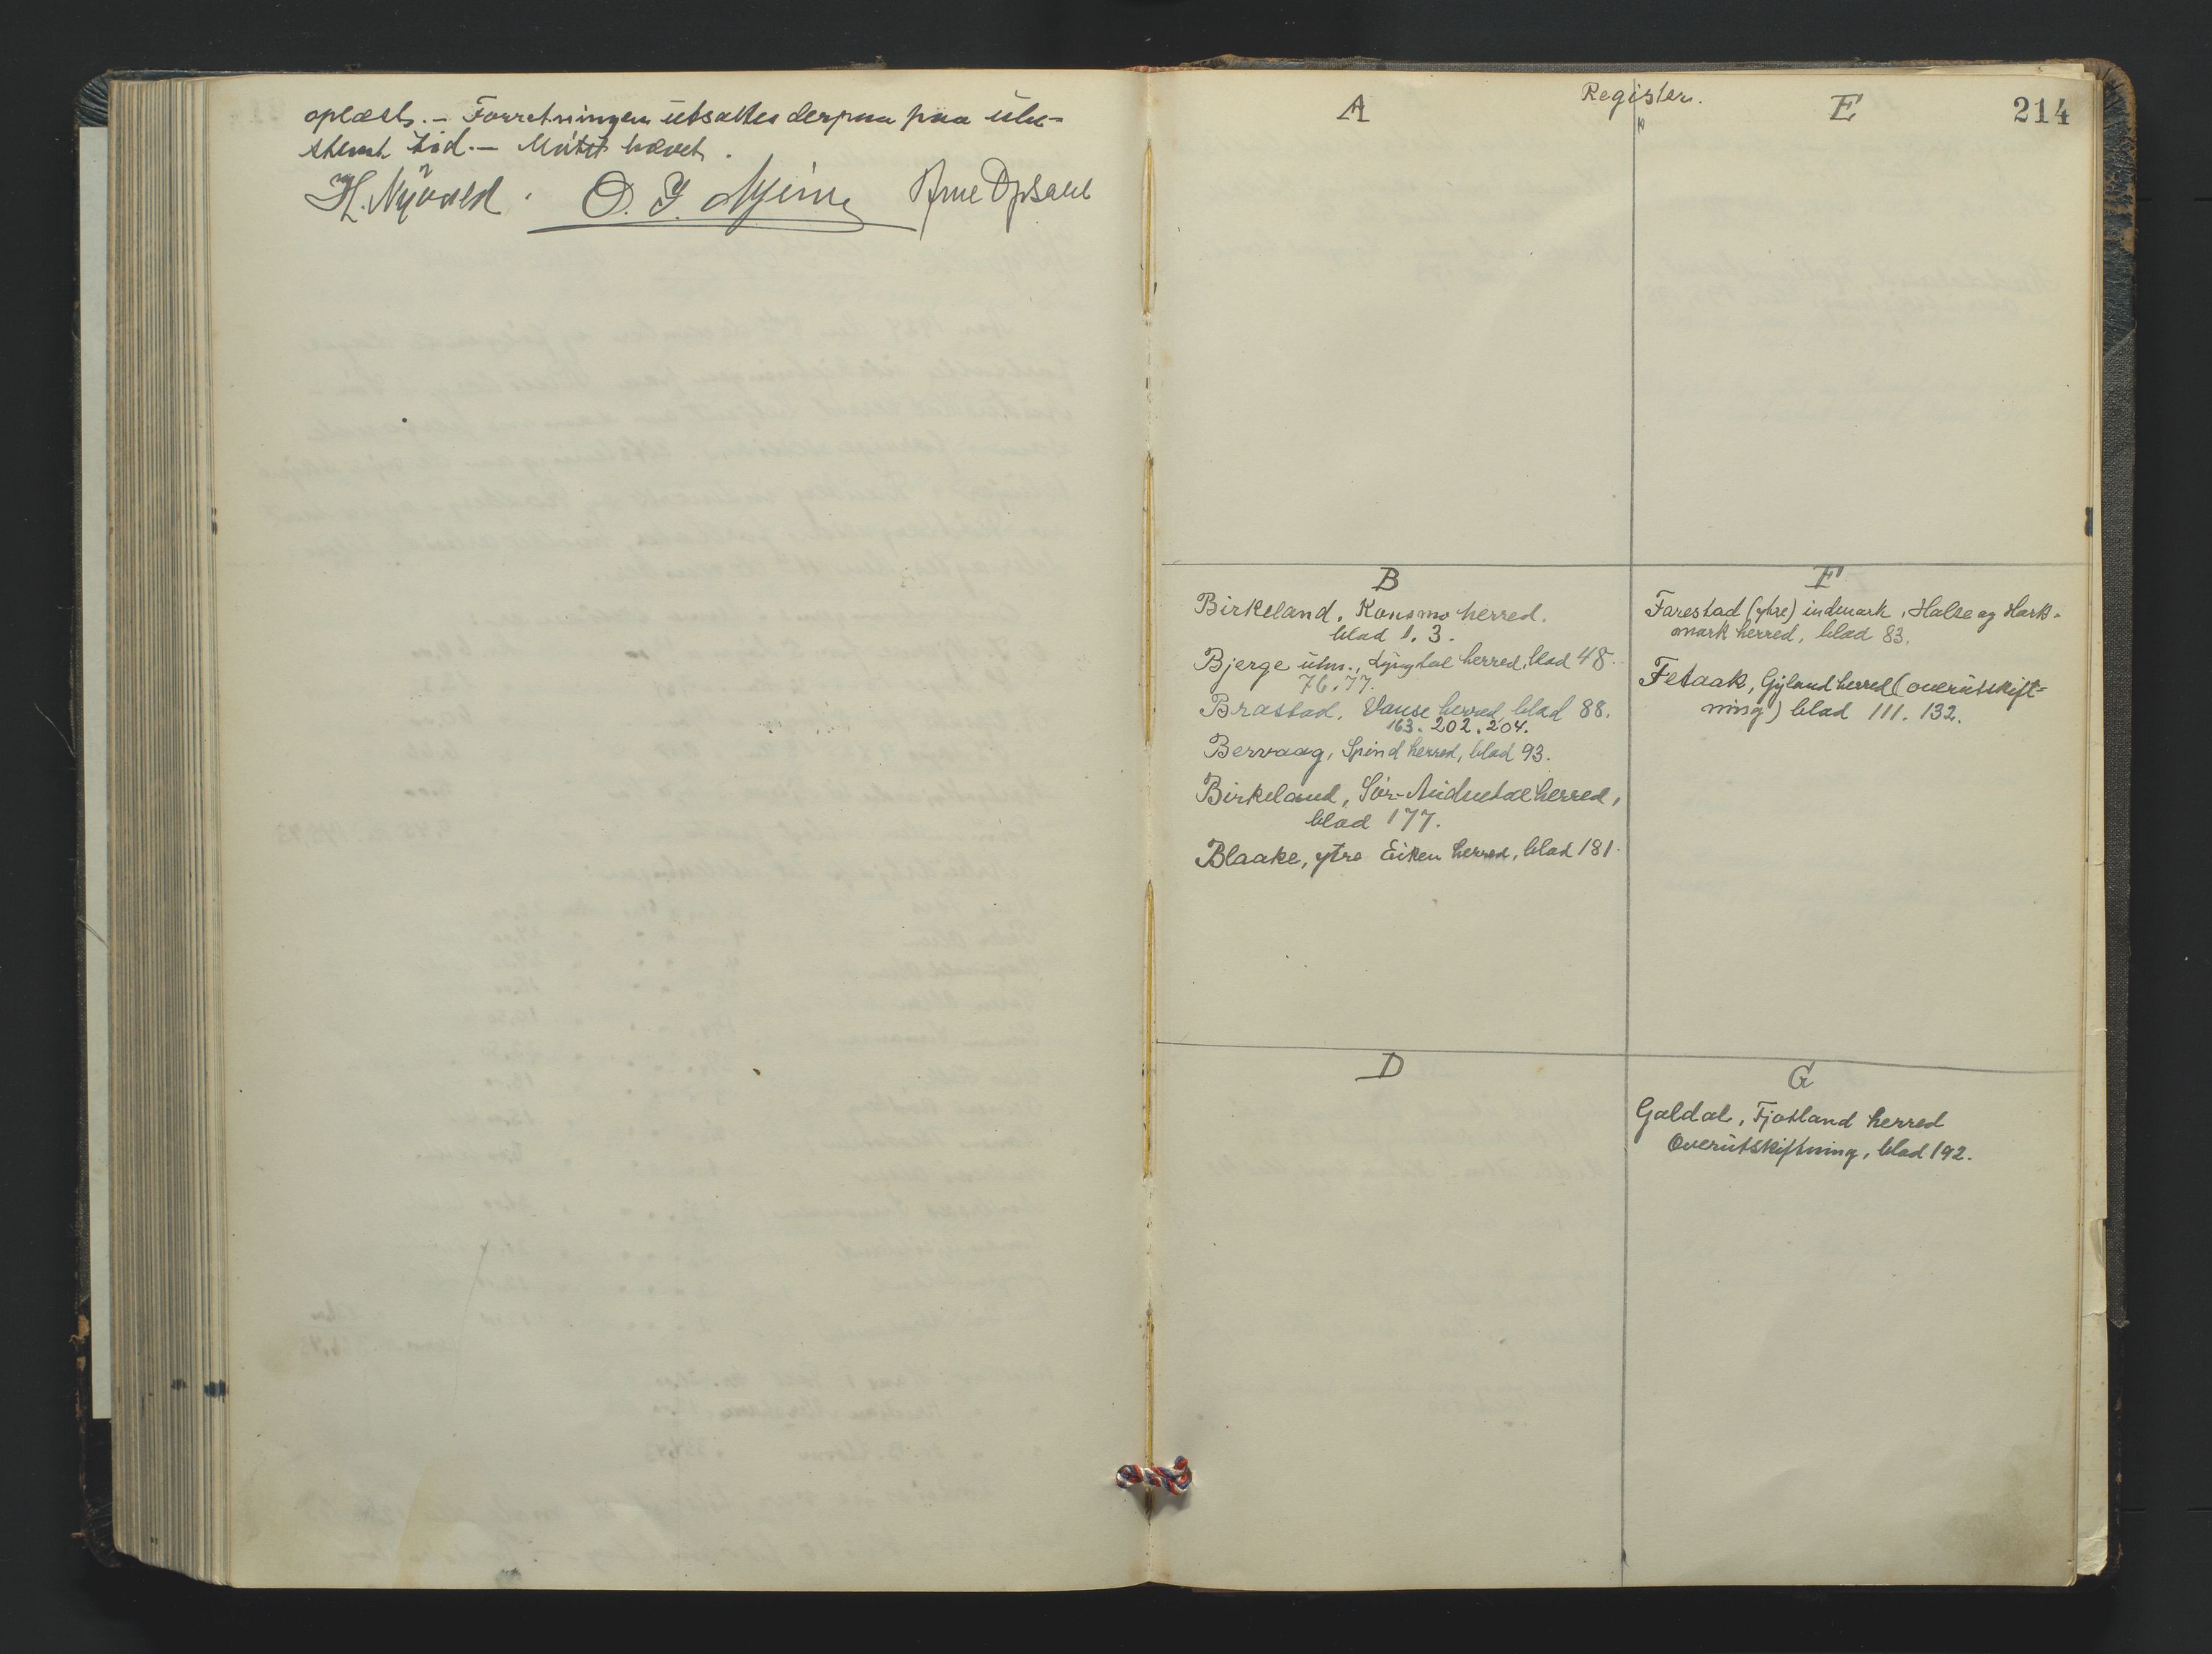 oplæst. – Forretningen utsattes derpaa paa ube-
stemt tid. – Møtet hævet.
H. Nyvold. O. J. Arne Opsahl
Register.
214
A
E
B
Birkeland, Konsmo herred.
blad 1. 3.
Bjerge utm., Lyngdal herred, blad 48.
76. 77.
Brastad, Vanse herred, blad 88.
163. 202. 204.
Bervaag, Spind herred, blad 93.
Birkeland, Sør-Audnedal herred,
blad 177.
Blaake, ytre Eiken herred, blad 181.
F
Farestad (ytre) indmark, Halse og Hark-
mark herred, blad 83.
Fetaak, Gyland herred (overutskift-
ning) blad 111. 132.
D
G
Galdal, Fjotland herred
Overutskiftning, blad 192.